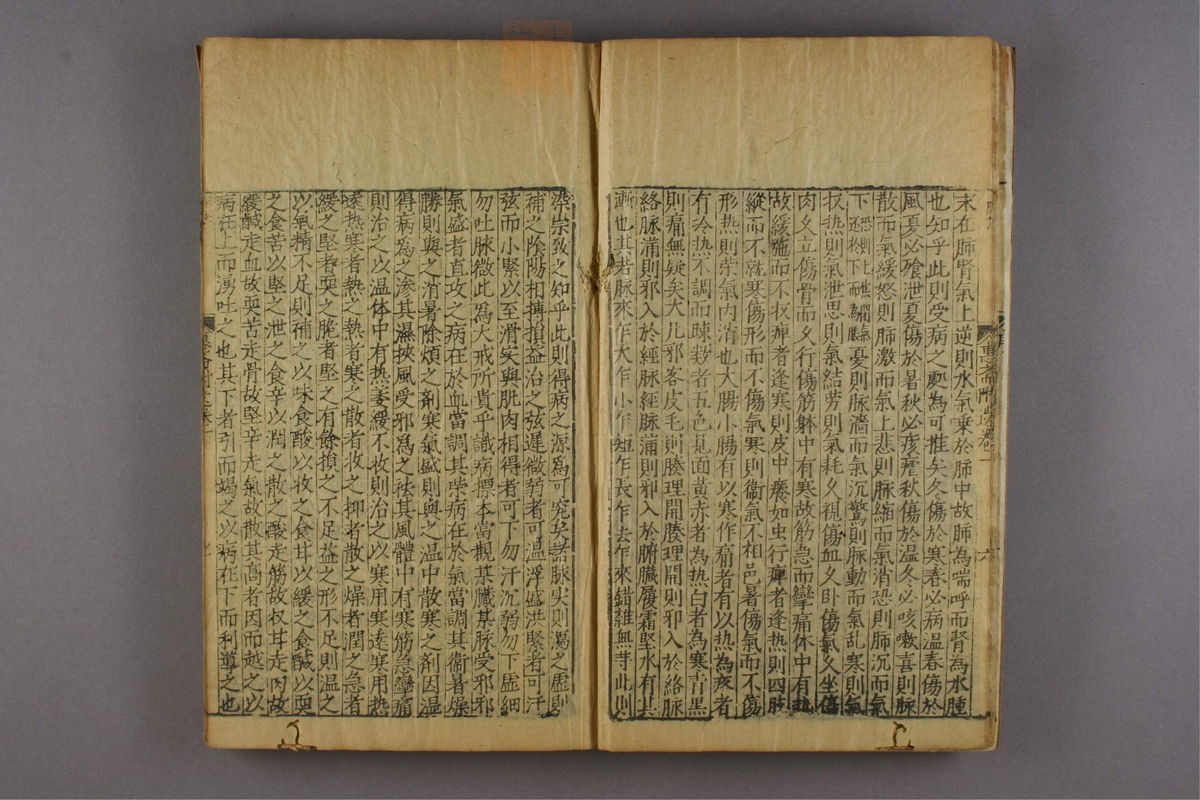 末在肺腎氣上逆則水氣乗於肺中故肺為喘呼而腎為水腫
也知乎此則受病之䖏為可推矣冬傷於寒春必病温春傷於
風夏必飱泄夏傷於暑秋必痎瘧秋傷於温冬必咳嗽喜則脉
散而氣緩怒則肺激而氣上悲則脉縮而氣消恐則肺沉而氣
下恐則上焦閉氣還於下而為脹憂則脉濇而氣沉驚則脉動而氣乱寒則氣
収热則氣泄思則氣結劳則氣耗久視傷血久卧傷氣久坐傷
肉久立傷骨而久行傷筋躰中有寒故筋急而攣痛体中有热
故緩弛而不収痺者逢寒則皮中癢如虫行痺者逢热則四肢
縱而不就寒傷形而不傷氣寒則衞氣不相邑暑傷氣而不傷
形热則荣氣内消也大腸小腸有以寒作痛者有以热為疼者
有冷热不調而踈㪚者五色見面黄赤者為热白者為寒青黒
則痛無疑矣大凡邪客皮毛則腠理開腠理開則邪入於絡脉
絡脉蒲則邪入於經脉經脉蒲則邪入於腑臓履霜堅氷有其
漸也其若脉來乍大乍小乍短乍長乍去乍來錯雜無芋此則
染祟致之知乎此則得病之源為可究矣諸脉实則瀉之虚則
補之陰陽相摶損益治之弦遲微弱者可温浮盛洪緊者可汗
弦而小緊以至滑矣與肌肉相得者可下勿汗沉弱勿下虚細
勿吐脉微此為大戒所貴乎識病標本當觀其臓其脉受邪邪
氣盛者直攻之病在於血當調其荣病在於氣當調其衞暑燥
勝則與之消暑除煩之剤寒氣盛則與之温中散寒之剤因温
得病為之滲其濕挾風受邪為之祛其風體中有寒筋急攣痛
則治之以温体中有热萎緩不收則治之以寒用寒逺寒用热
逺热寒者熱之熱者寒之散者收之抑者散之燥者潤之急者
緩之堅者耎之脆者堅之有餘損之不足益之形不足則温之
以氣精不足則補之以味食酸以收之食甘以緩之食鹹以耎
之食苦以堅之泄之食辛以潤之散之酸走筋故収甘走肉故
緩鹹走血故耎苦走骨故堅辛走氣故散其高者因而越之以
病在上而湧吐之也其下者引而竭之以病在下而利導之也